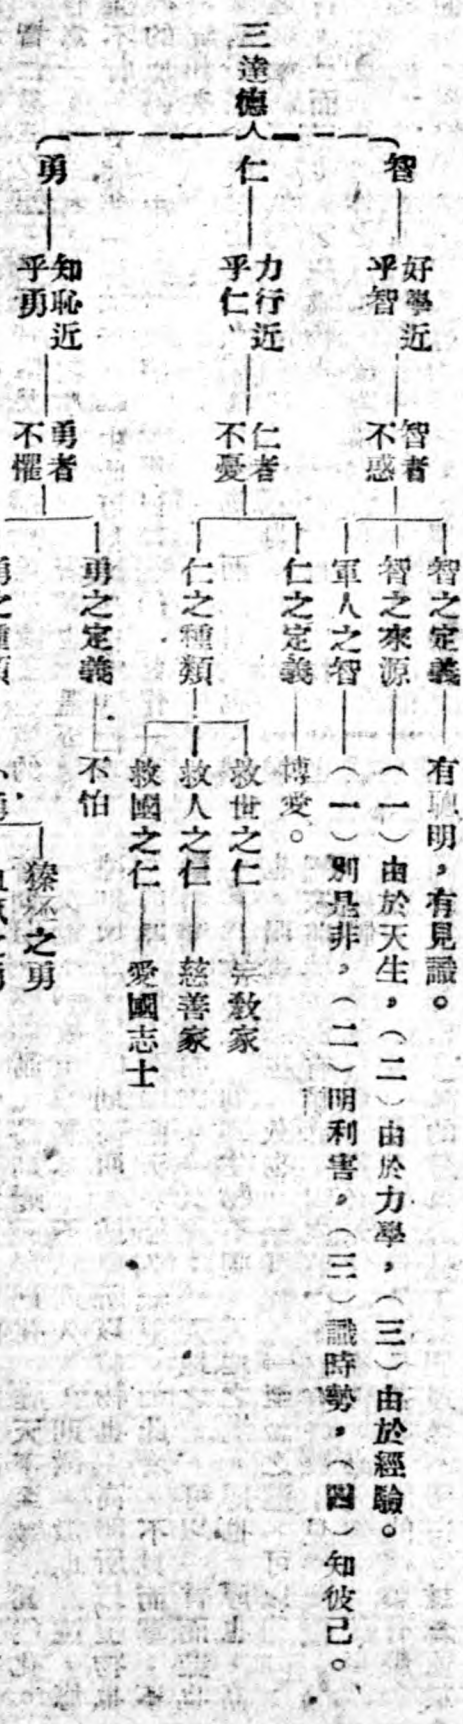 三達德
智
好學近
乎智
智者
不惑
智之定義
有聰明，有見識。
智之來源
（一）由於天生，（二）由於力學，（三）由於經驗。
軍人之智
（一）別是非，（二）明利害，（三）識時勢，（四）知彼己。
仁
力行近
乎仁
仁者
不憂
仁之定義
博愛。
仁之種類
救世之仁
宗教家
救人之仁
慈善家
救國之仁
愛國志士
勇
知恥近
乎勇
勇者
不懼
勇之定義
不怕
勇之種類
之勇